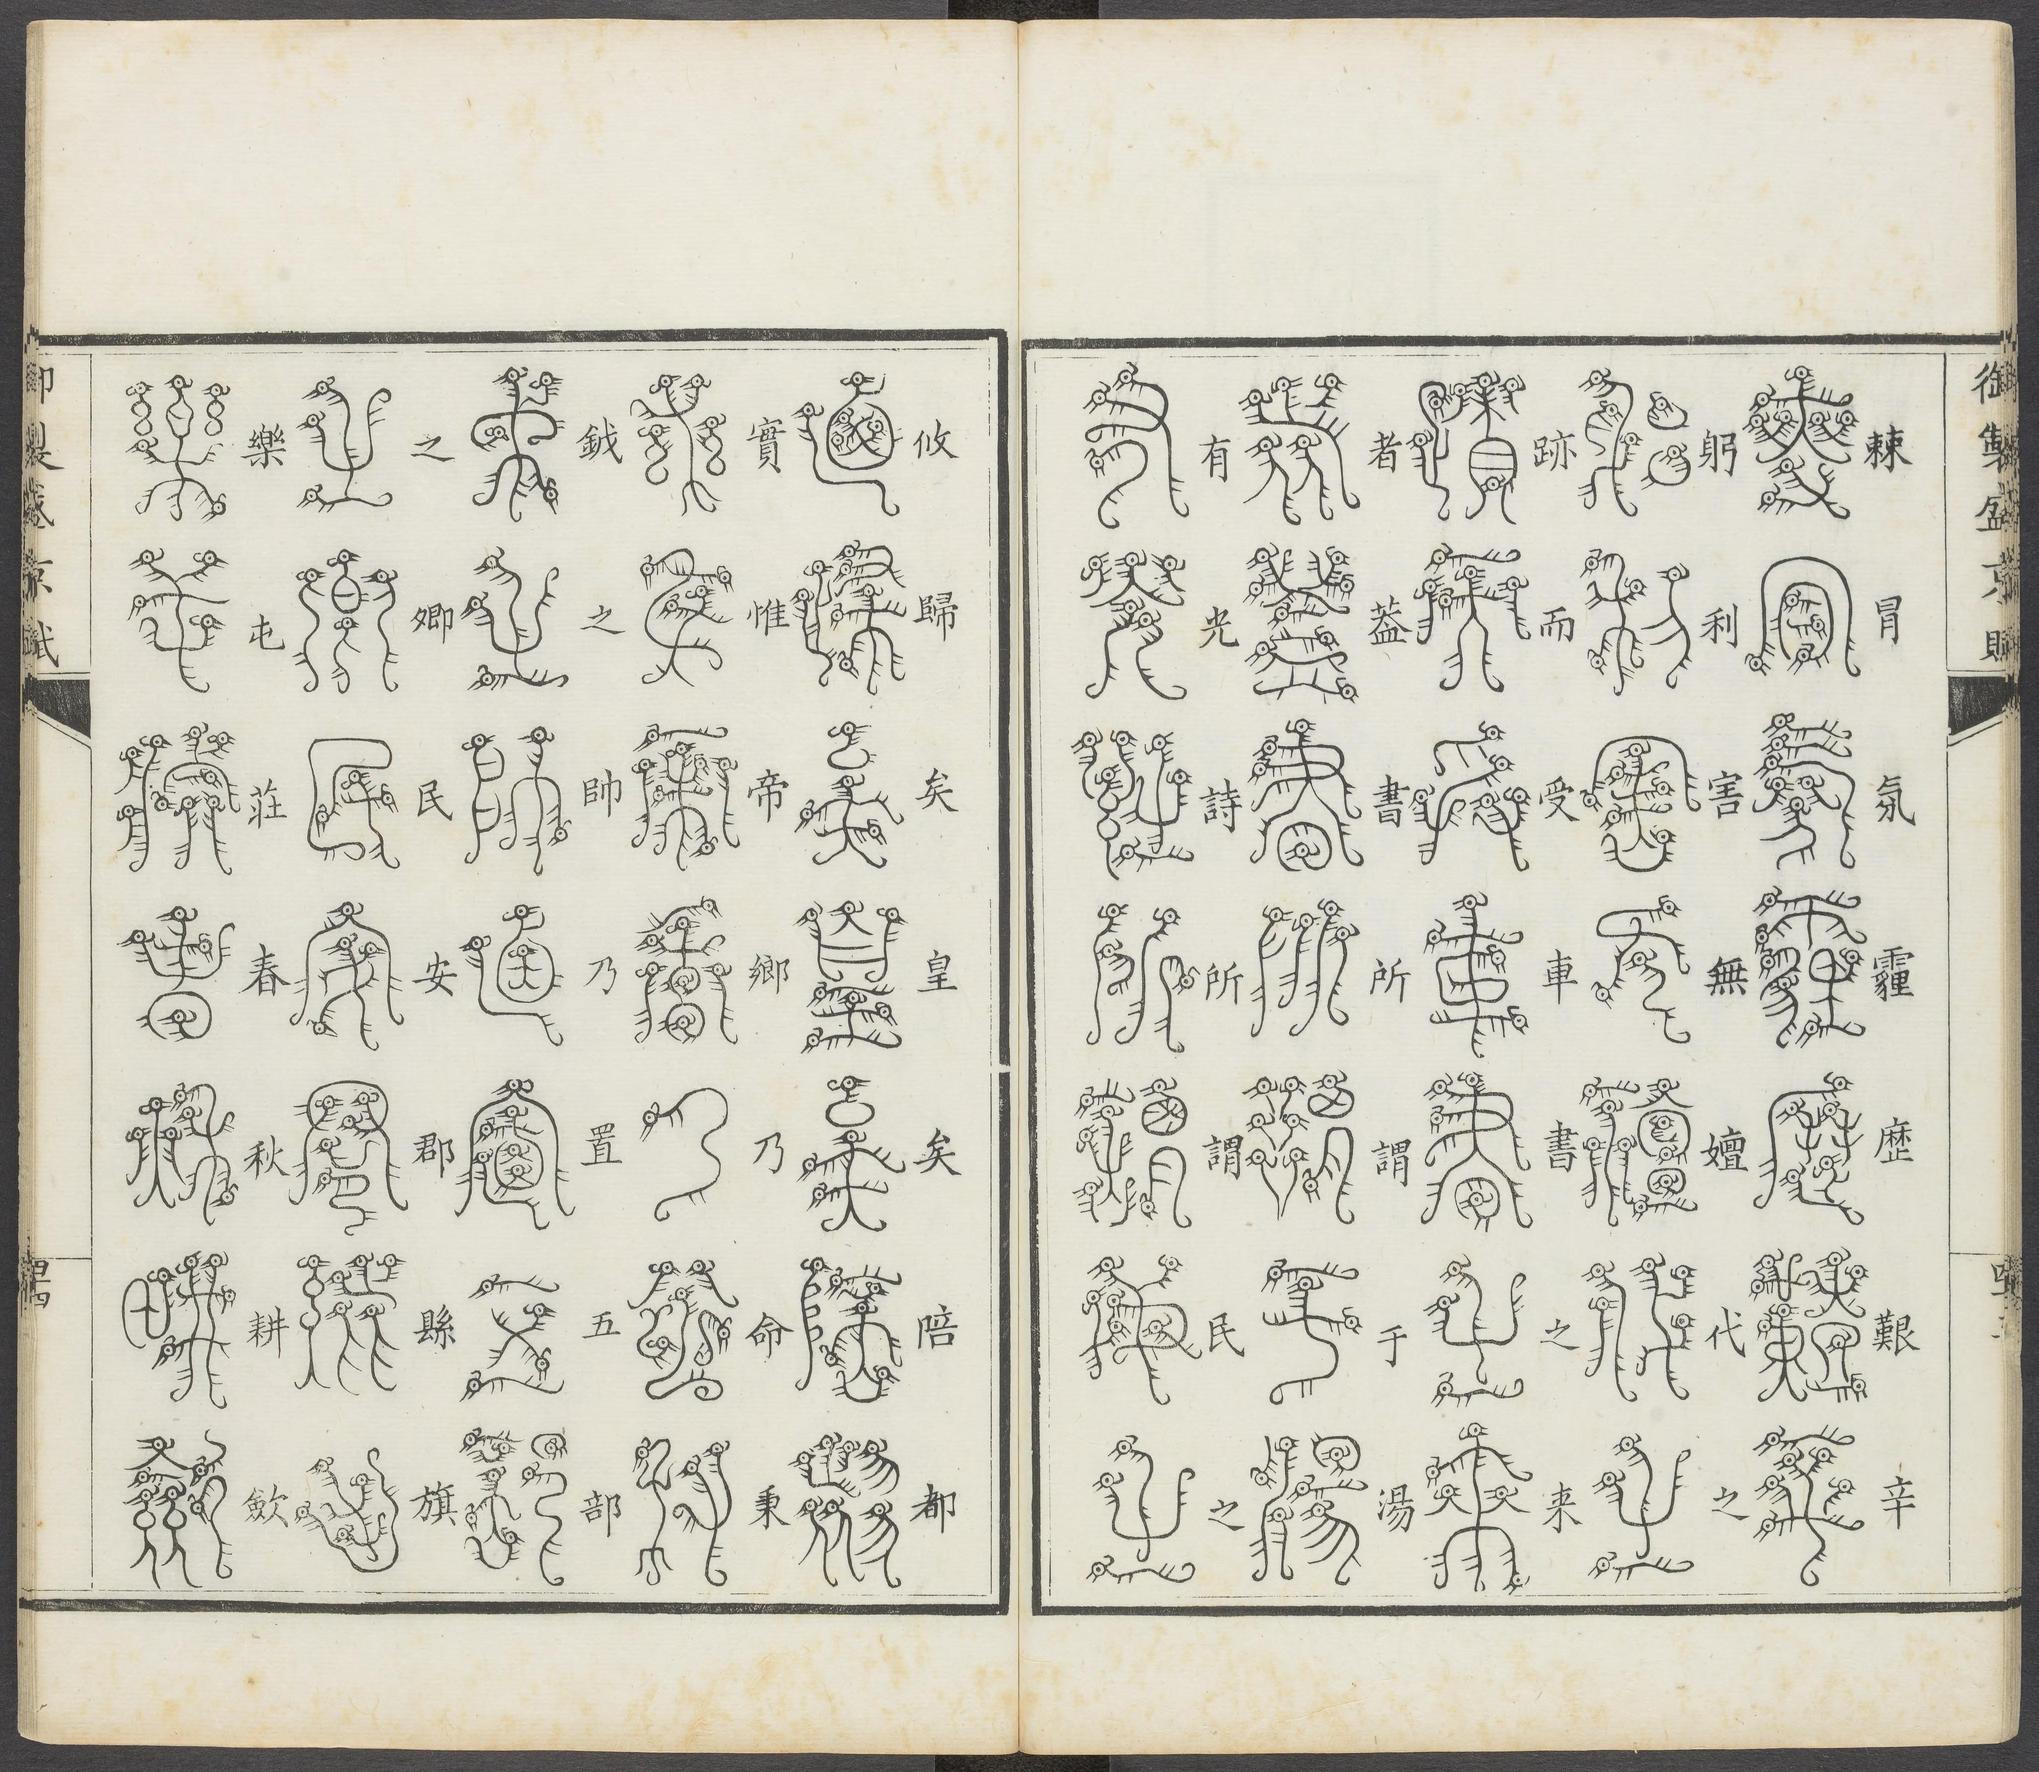 御製盛京賦
棘冒氛霾歷艱辛
躬利害無嬗代之
跡而受車書之来
者蓋書所謂于湯
有光詩所謂民之
攸歸矣皇矣陪都
實惟帝鄉乃命秉
鉞之帥乃置五部
之卿民安郡縣旗
樂屯莊春秋耕歛
御製盛京賦